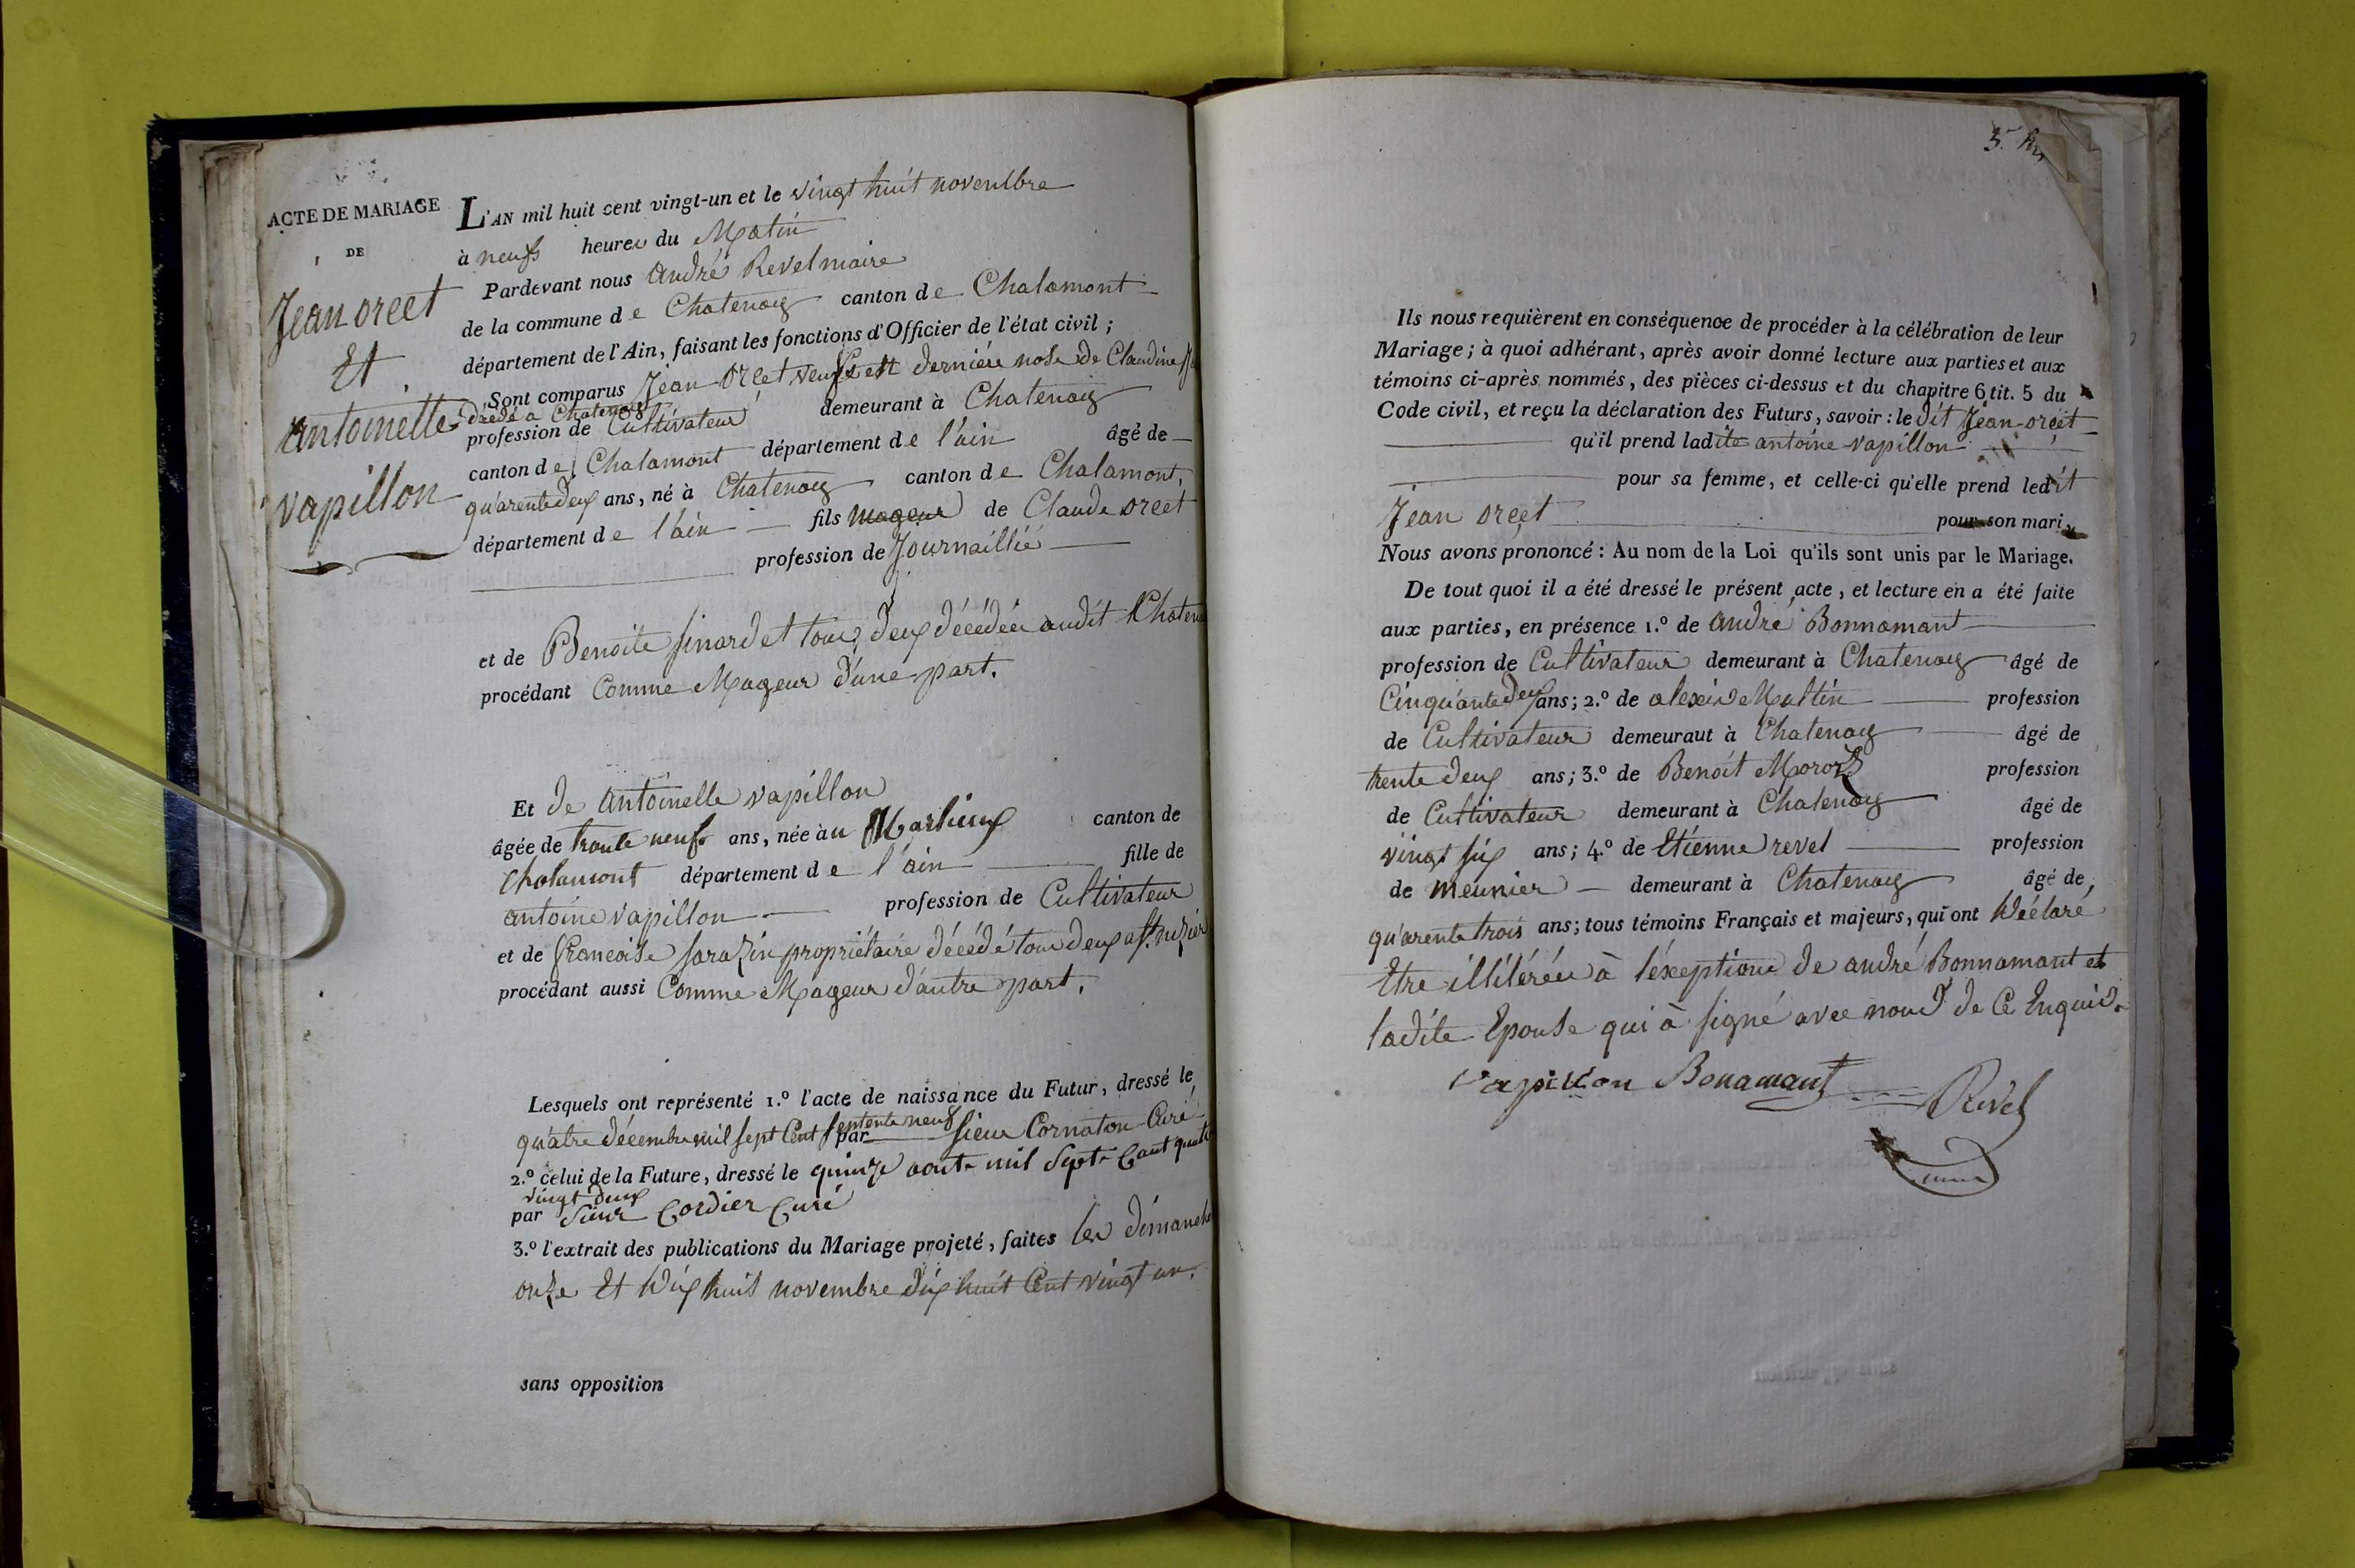 ACTE DE MARIAGE
DE
Jean orcet
Et
antoinette
vapillon
L'AN mil huit cent vingt-un et le vingt huit novembre
à neufs heures du Matin
Pardevant nous André Revel maire
de la commune de Chatenay canton de Chalamont
département de l'Ain, faisant les fonctions d'Officier de l'état civil ;
Sont comparus Jean Orcet veufs en dernière nose de Claudine
décédé a Chatenay
profession de Cultivateur demeurant à Chatenay
canton de Chalamont département de l'ain âgé de
quarente deux ans, né à Chatenay canton de Chalamont,
département de l'ain fils mageur de Claude orcet
profession de Journaillié
et de Benoite sinardet tous deux décédés audit Chatenay
procédant Comme Mageur d'une part.
Et de Antoinette vapillon
âgée de trante neuf ans, née à u Marlieux canton de
Chalamont département de l'ain fille de
antoine vapillon profession de Cultivateur
et de francoise sarazin propriétaire décédé tous deux a st. nizier
procédant aussi Comme Mageur d'autre part.
Lesquels ont représenté 1.º l'acte de naissance du Futur, dressé le
quatre décembre mil sept Cent septente neuf par sieur Cornaton Curé
2.º celui de la Future, dressé le quinze aoute mil Septe Cant quatre
vingt deux
par Sieur Cordier Curé
3.º l'extrait des publications du Mariage projeté, faites les dimanche
onze Et dix huit novembre dix huit Cent vingt un.
sans opposition
Ils nous requièrent en conséquence de procéder à la célébration de leur
Mariage ; à quoi adhérant, après avoir donné lecture aux parties et aux
témoins ci-après nommés, des pièces ci-dessus et du chapitre 6 tit. 5 du
Code civil, et reçu la déclaration des Futurs, savoir : le dit Jean orcet
qu'il prend ladite antoine vapillon
pour sa femme, et celle-ci qu'elle prend ledit
Jean orcet pour son mari
Nous avons prononcé : Au nom de la Loi qu'ils sont unis par le Mariage.
De tout quoi il a été dressé le présent acte, et lecture en a été faite
aux parties, en présence 1.º de André Bonnamant
profession de Cultivateur demeurant à Chatenay âgé de
Cinquante deux ans ; 2.º de alexis Multin profession
de Cultivateur demeuraut à Chatenay âgé de
trente deux ans ; 3.º de Benoit profession
de Cultivateur demeurant à Chatenay âgé de
vingt six ans ; 4.º de Etienne revel profession
de meunier demeurant à Chatenay âgé de
quarente trois ans ; tous témoins Français et majeurs, qui ont déclaré
Etre illitérés à l'exeptione de andré Bonnamant et
ladite Epouse qui à signé avec nous de Ce Enquis.
vapillon Bonamant Revel